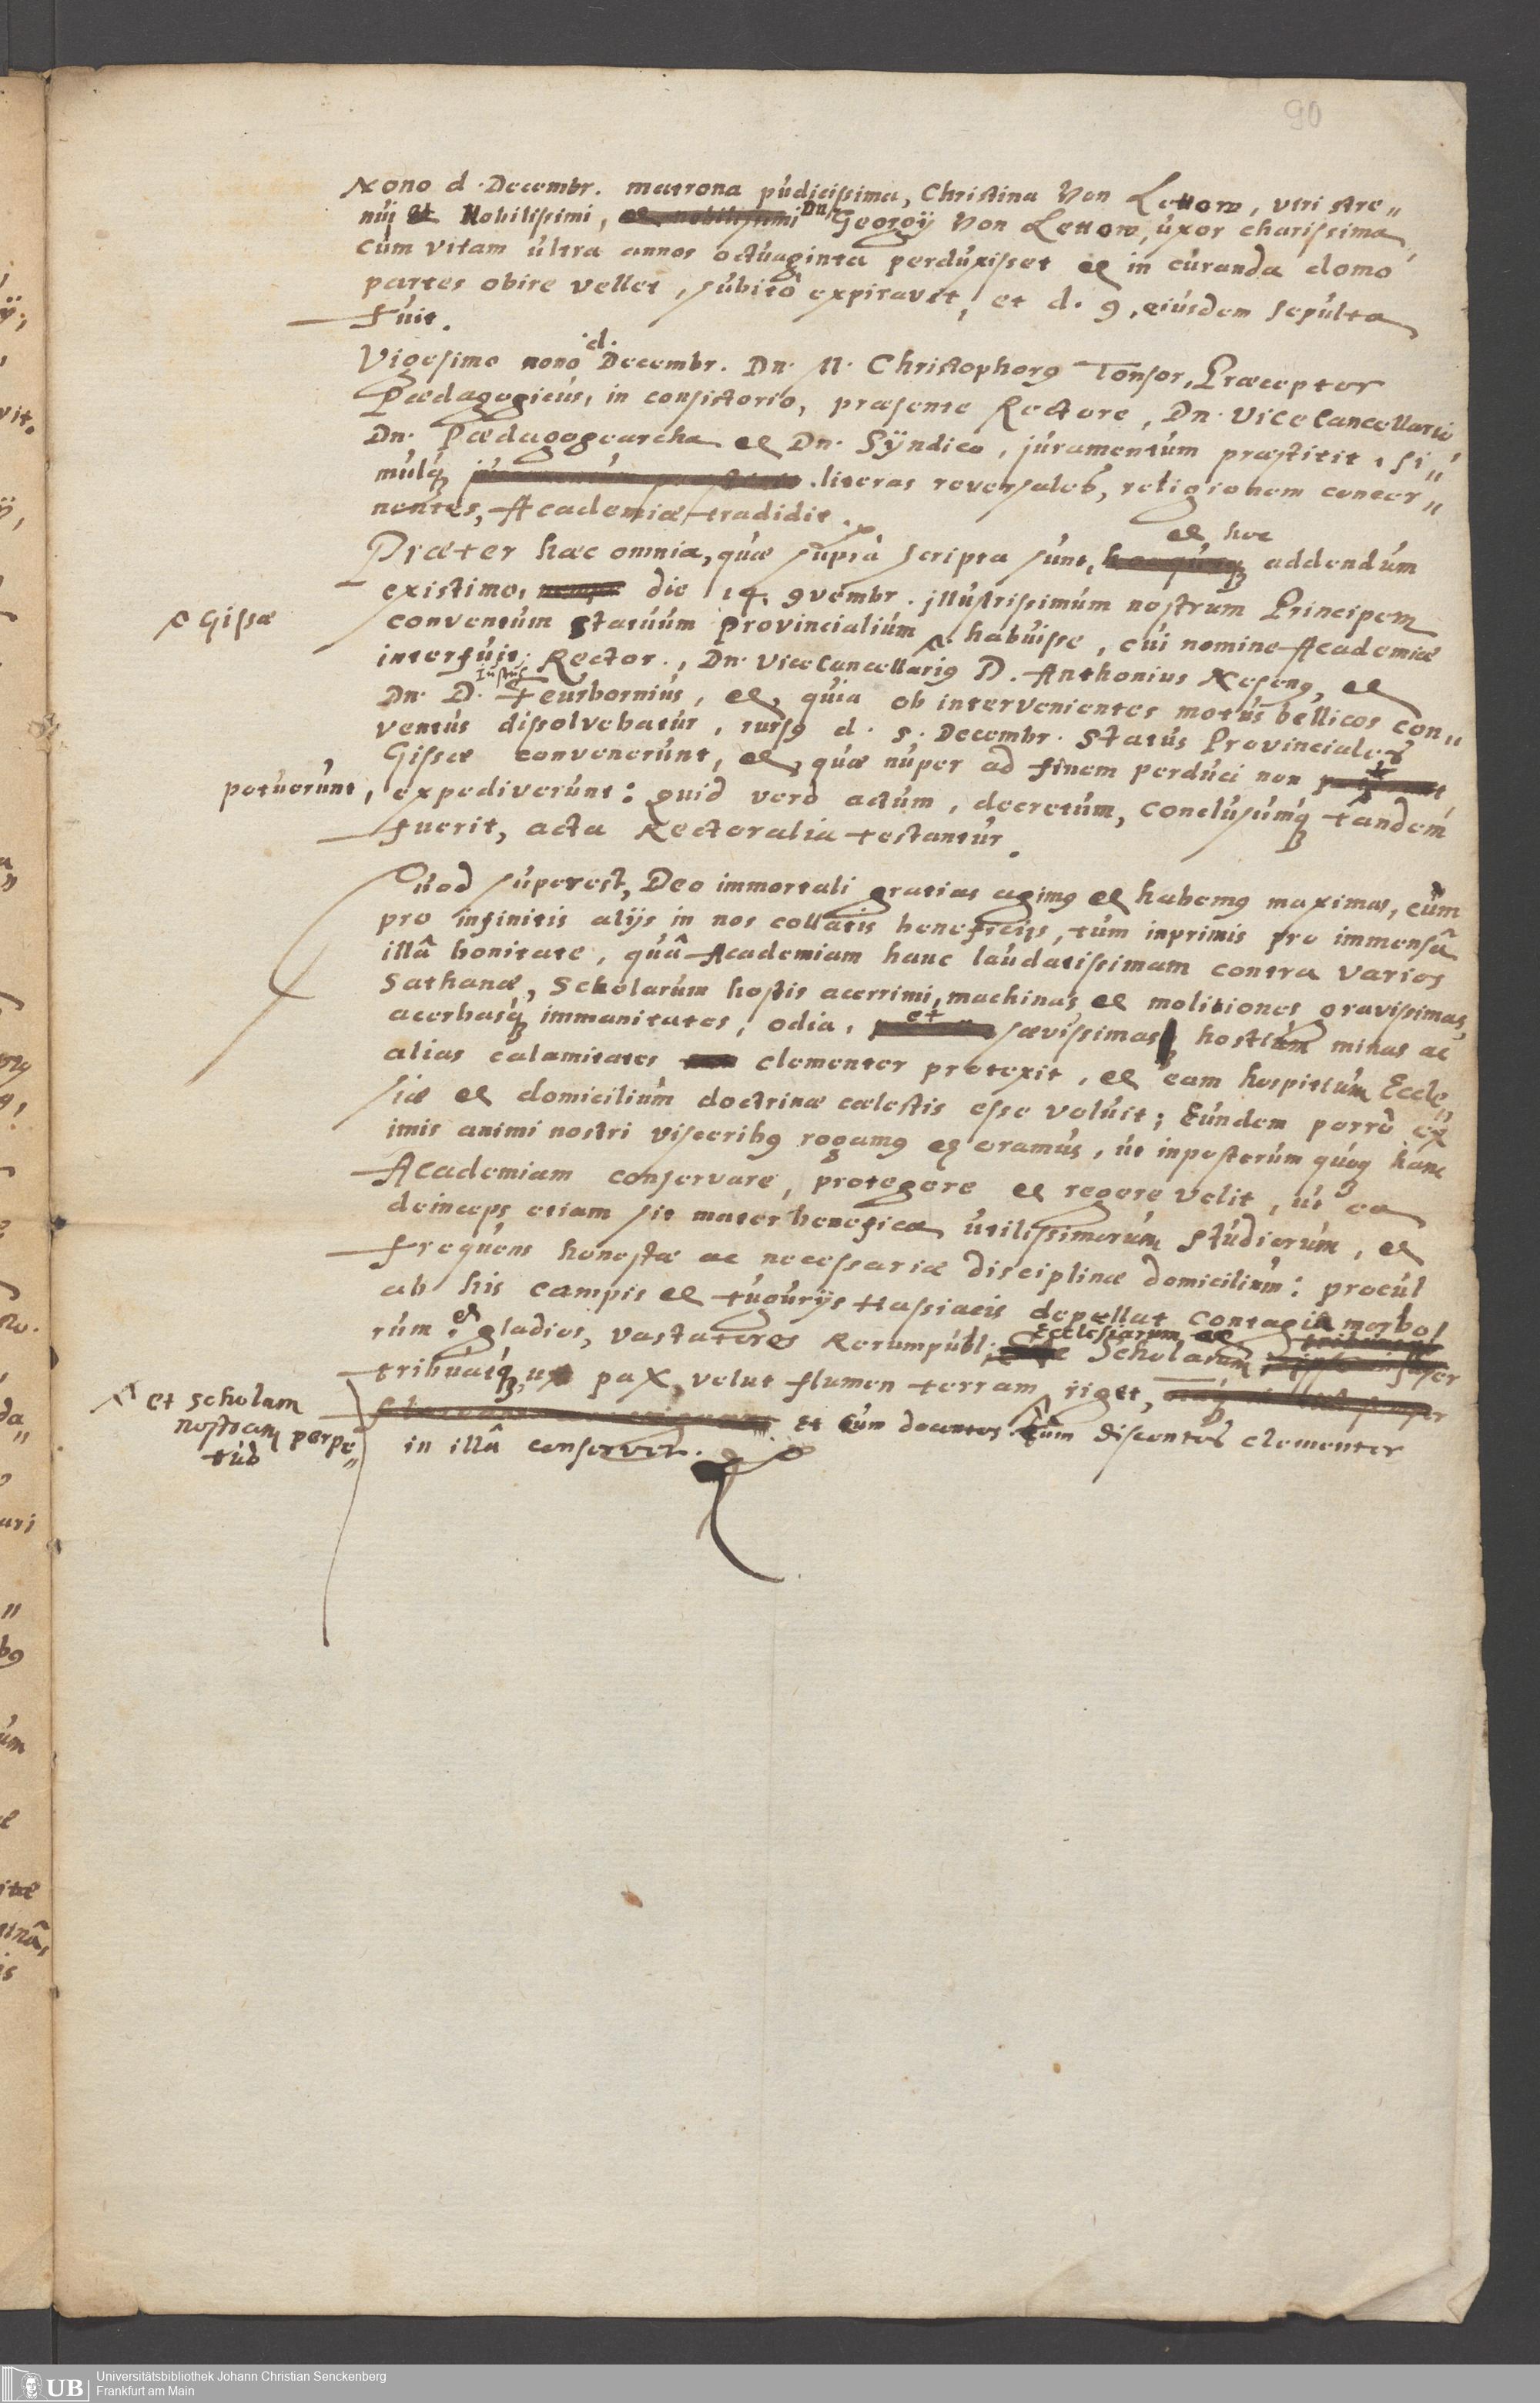 90
Nono d. Decembr. matrona pudicissima, Christina Von Lettow, viri stre„
nuj et Nobilissimi, et nobilissimi Dn. Georgÿ Von Lettow, uxor charissima,
cum vitam ultra annos octuaginta perduxisset et in curanda domo
partes obire vellet, subitò expiravit, et d. 9. eiusdem sepulta
fuit.
Vigesimo nono d. Decembr. Dn. M. Christophorꝰ Tonsor, Præceptor
Pædagogicus, in consistorio, præsente Rectore, Dn. ViceCancellario
Dn. Pædagogearcha et Dn. Sÿndico, juramentum præstitit, si„
mulqꝫ juramentum præstitit. literas reversales, religionem concer„
nentes, Academiæ tradidit.
et hoc
Præter hæc omnia, quæ suprà scripta sunt, addendum
existimo, die 14. 9vembr. jllustrissimum nostrum Principem
Gissæ
conventum statuum Provincialium habuisse, cui nomine Academiæ
interfuit Rector, Dn. ViceCancellariꝰ D. Anthonius Nesenꝰ, et
Dn. D. Justus Feurbornius, et, quia ob intervenientes motus bellicos con„
ventus dissolvebatur, rursꝰ d. 5. Decembr. Status Provinciales
Gissæ convenerunt, et, quæ nuper ad finem perduci non
potuerunt, expediverunt: quid verò actum, decretum, conclusumqꝫ tandem
fuerit, acta Rectoralia testantur.
Quod superest, Deo immortali gratias agimꝰ et habemꝰ maximas, cùm
pro infinitis alijs in nos collatis beneficijs, tùm inprimis pro immensâ
illâ bonitate, quâ Academiam hanc laudatissimam contra varios
Sathanæ, Scholarum hostis acerrimi, machinas et molitiones gravissimas,
acerbasqꝫ immanitates, odia, et sævissimas hostium minas ac
alias calamitates clementer protexit, et eam hospitium Eccle„
siæ et domicilium doctrinæ cælestis esse voluit; Eundem porrò ex
imis animi nostri visceribꝰ rogamꝰ et oramus, ut inposterum quoqꝫ hanc
Academiam conservare, protegere et regere velit, ut ea
deinceps etiam sit mater benefica utilissimorum studiorum, et
frequens honestæ ac necessariæ disciplinæ domicilium: procul
ab his campis et tugurijs Hassiacis depellat contagia morbo
rum et gladios, vastatores Rerumpubl. Ecclesiarum et Scholarum
tribuatqꝫ ut pax, velut flumen terram riget,
et scholam
nostram perpe„
tuò
et cùm docentes tùm discentes clementer
in illâ conservet.
Universitätsbibliothek Johann Christian Senckenberg
Frankfurt am Main
UB